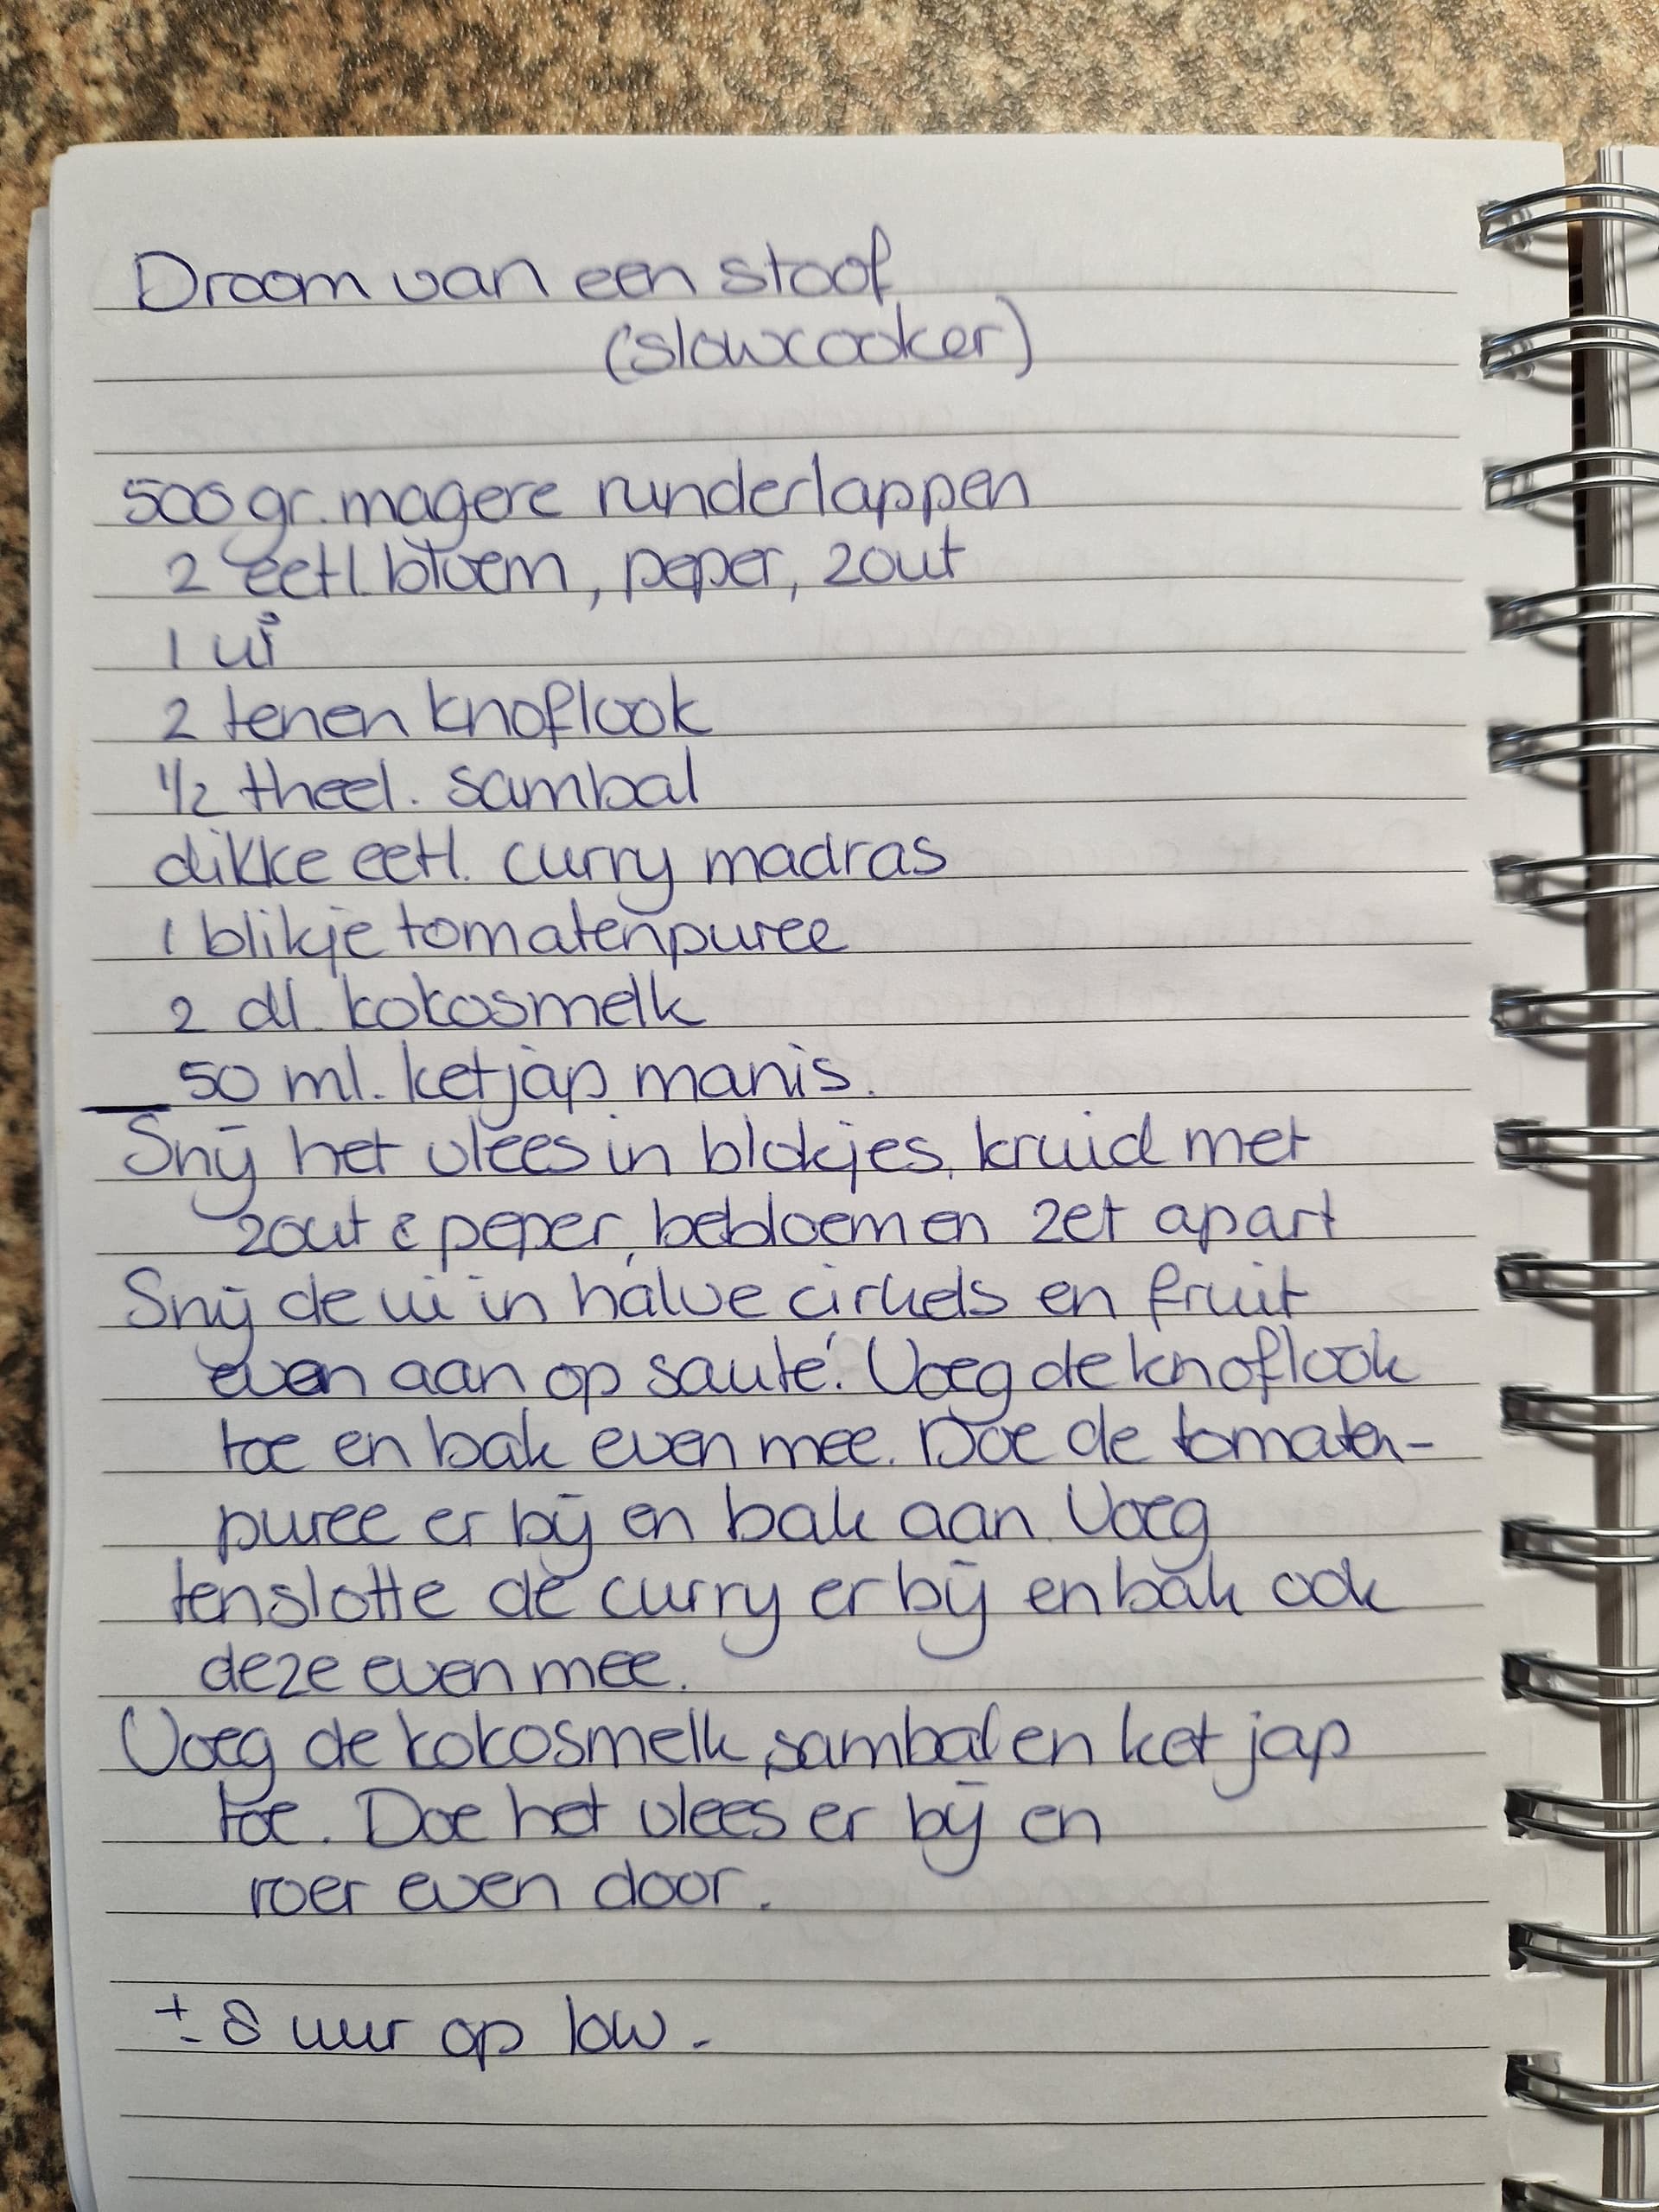 Droom van een stoof
(slowcooker)
500 gr. magere runderlappen
2 eetl. bloem, peper, zout
1 ui
2 tenen knoflook
1/2 theel. sambal
dikke eetl. curry madras
1 blikje tomatenpuree
2 dl. kokosmelk
50 ml. ketjap manis.
Snij het vlees in blokjes, kruid met
zout & peper, bebloem en zet apart
Snij de ui in halve cirkels en fruit
even aan op sauté. Voeg de knoflook
toe en bak even mee. Doe de tomaten-
puree er bij en bak aan. Voeg
tenslotte de curry er bij en bak ook
deze even mee.
Voeg de kokosmelk, sambal en ketjap
toe. Doe het vlees er bij en
roer even door.
± 8 uur op low.